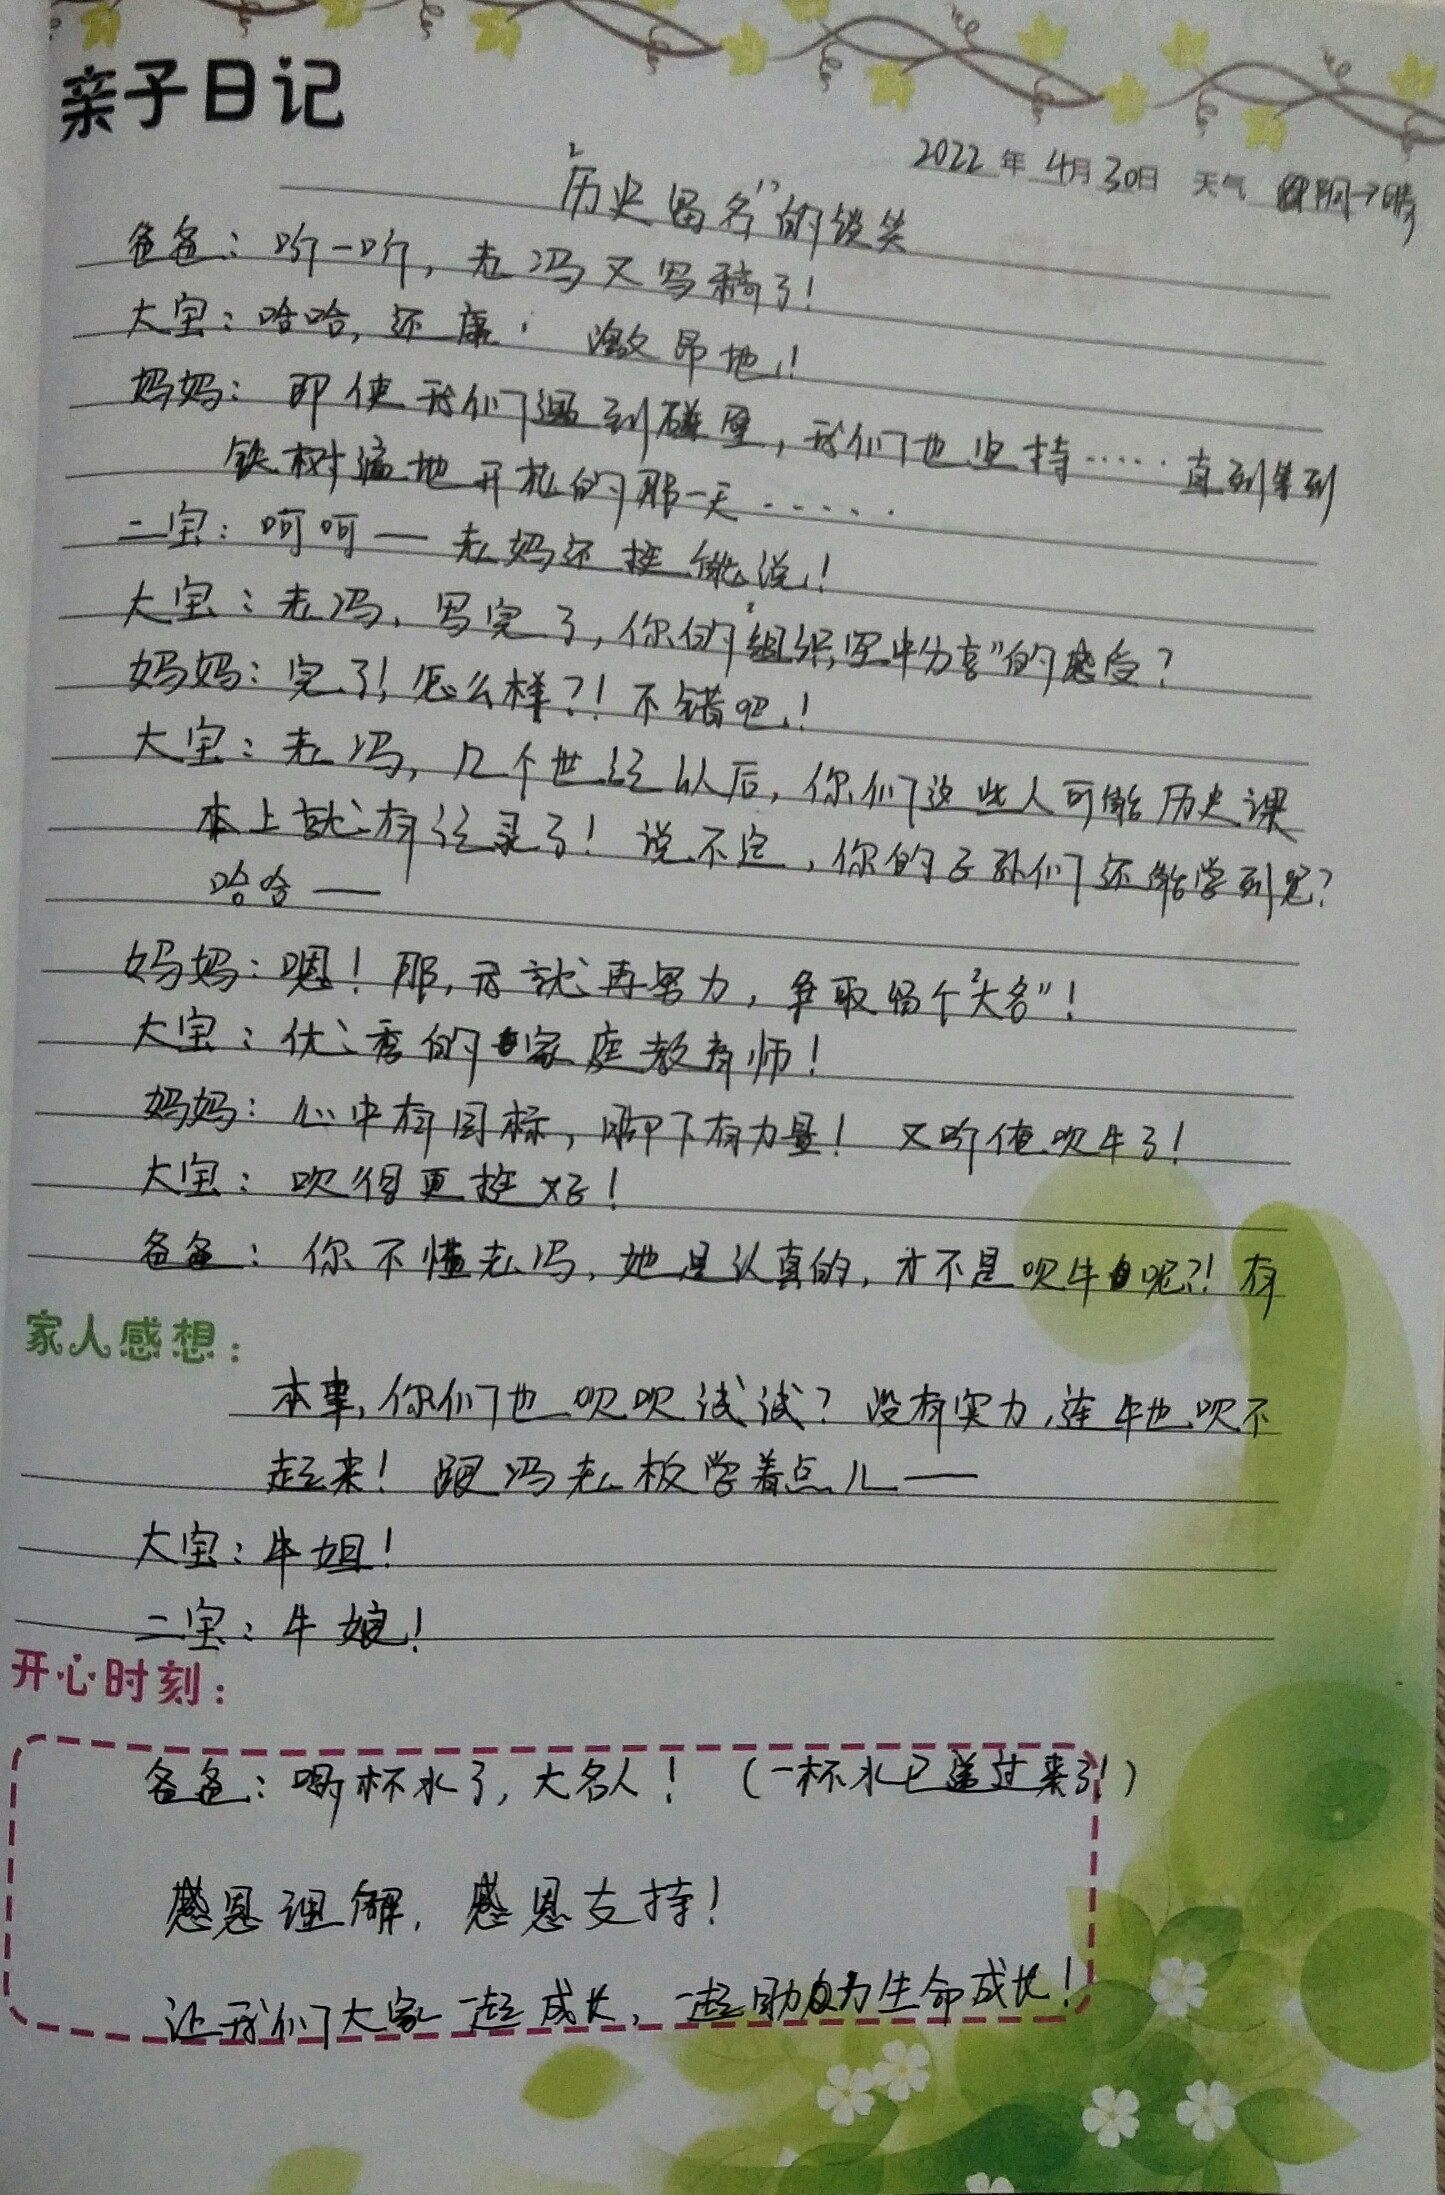 亲子日记
2022年4月30日 天气 阴→晴
"历史留名"的谈笑
爸爸：听一听，老冯又写稿了！
大宝：哈哈，还 激昂地！
妈妈：即使我们遇到碰壁，我们也坚持……直到等到
铁树遍地开花的那一天……
二宝：呵呵—老妈还挺能说！
大宝：老冯，写完了，你的"组织 分享"的感受？
妈妈：完了！怎么样？！不错吧！
大宝：老冯，几个世纪以后，你们这些人可能历史课
本上就有记录了！说不定，你的子孙们还能学到呢？
哈哈——
妈妈：嗯！那，我就再努力，争取留个"大名"！
大宝：优秀的家庭教育师！
妈妈：心中有目标，脚下有力量！又听俺吹牛了！
大宝：吹得更挺好！
爸爸：你不懂老冯，她是认真的，才不是吹牛呢？！有
家人感想：
本事，你们也吹吹试试？没有实力，连牛也吹不
起来！跟冯老板学着点儿——
大宝：牛姐！
二宝：牛娘！
开心时刻：
爸爸：喝杯水了，大名人！（一杯水已递过来了！）
感恩理解，感恩支持！
让我们大家一起成长，一起助力生命成长！